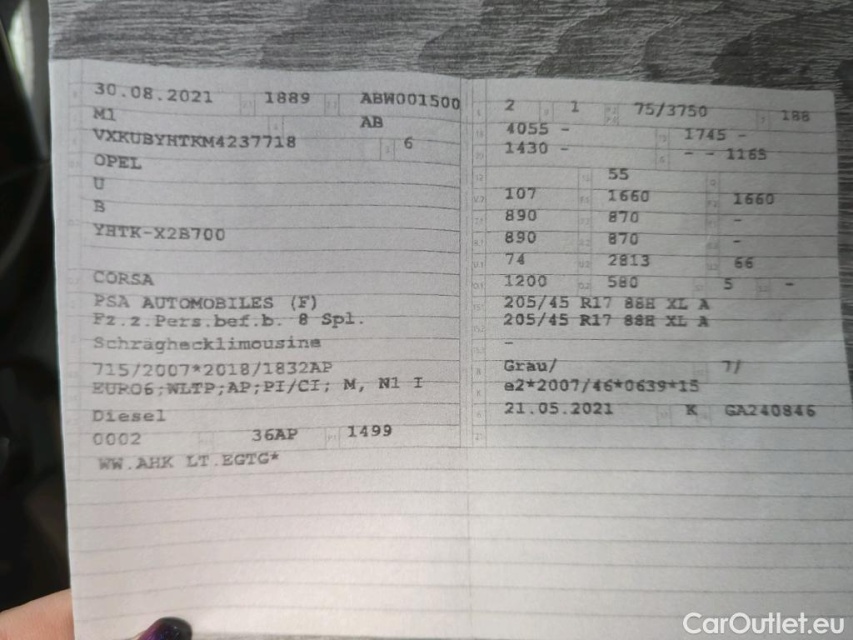 30.08.2021 1889 ABW001500
M1 AB
VXKUBYHTKM4237718 6
OPEL
U
B
YHTK-X2B700
CORSA
PSA AUTOMOBILES (F)
Fz.z.Pers.bef.b. 8 Spl.
Schräghecklimousine
715/2007*2018/1832AP
EURO6;WLTP;AP;PI/CI; M, N1 I
Diesel
0002 36AP 1499
WW.AHK LT.EGTG*
2 1 75/3750 188
4055 - 1745 -
1430 - - - 1165
55
107 1660 1660
890 870 -
890 870 -
74 2813 66
1200 580 5 -
205/45 R17 88H XL A
205/45 R17 88H XL A
-
Grau/ 7/
e2*2007/46*0639*15
21.05.2021 K GA240846
CarOutlet.eu